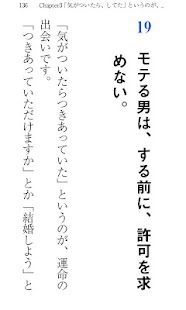 136　Chapter3「気がついたら、してた」というのが、
19
モテる男は、する前に、許可を求
めない。
「気がついたらつきあっていた」というのが、運命の
出会いです。
「つきあっていただけますか」とか「結婚しよう」と